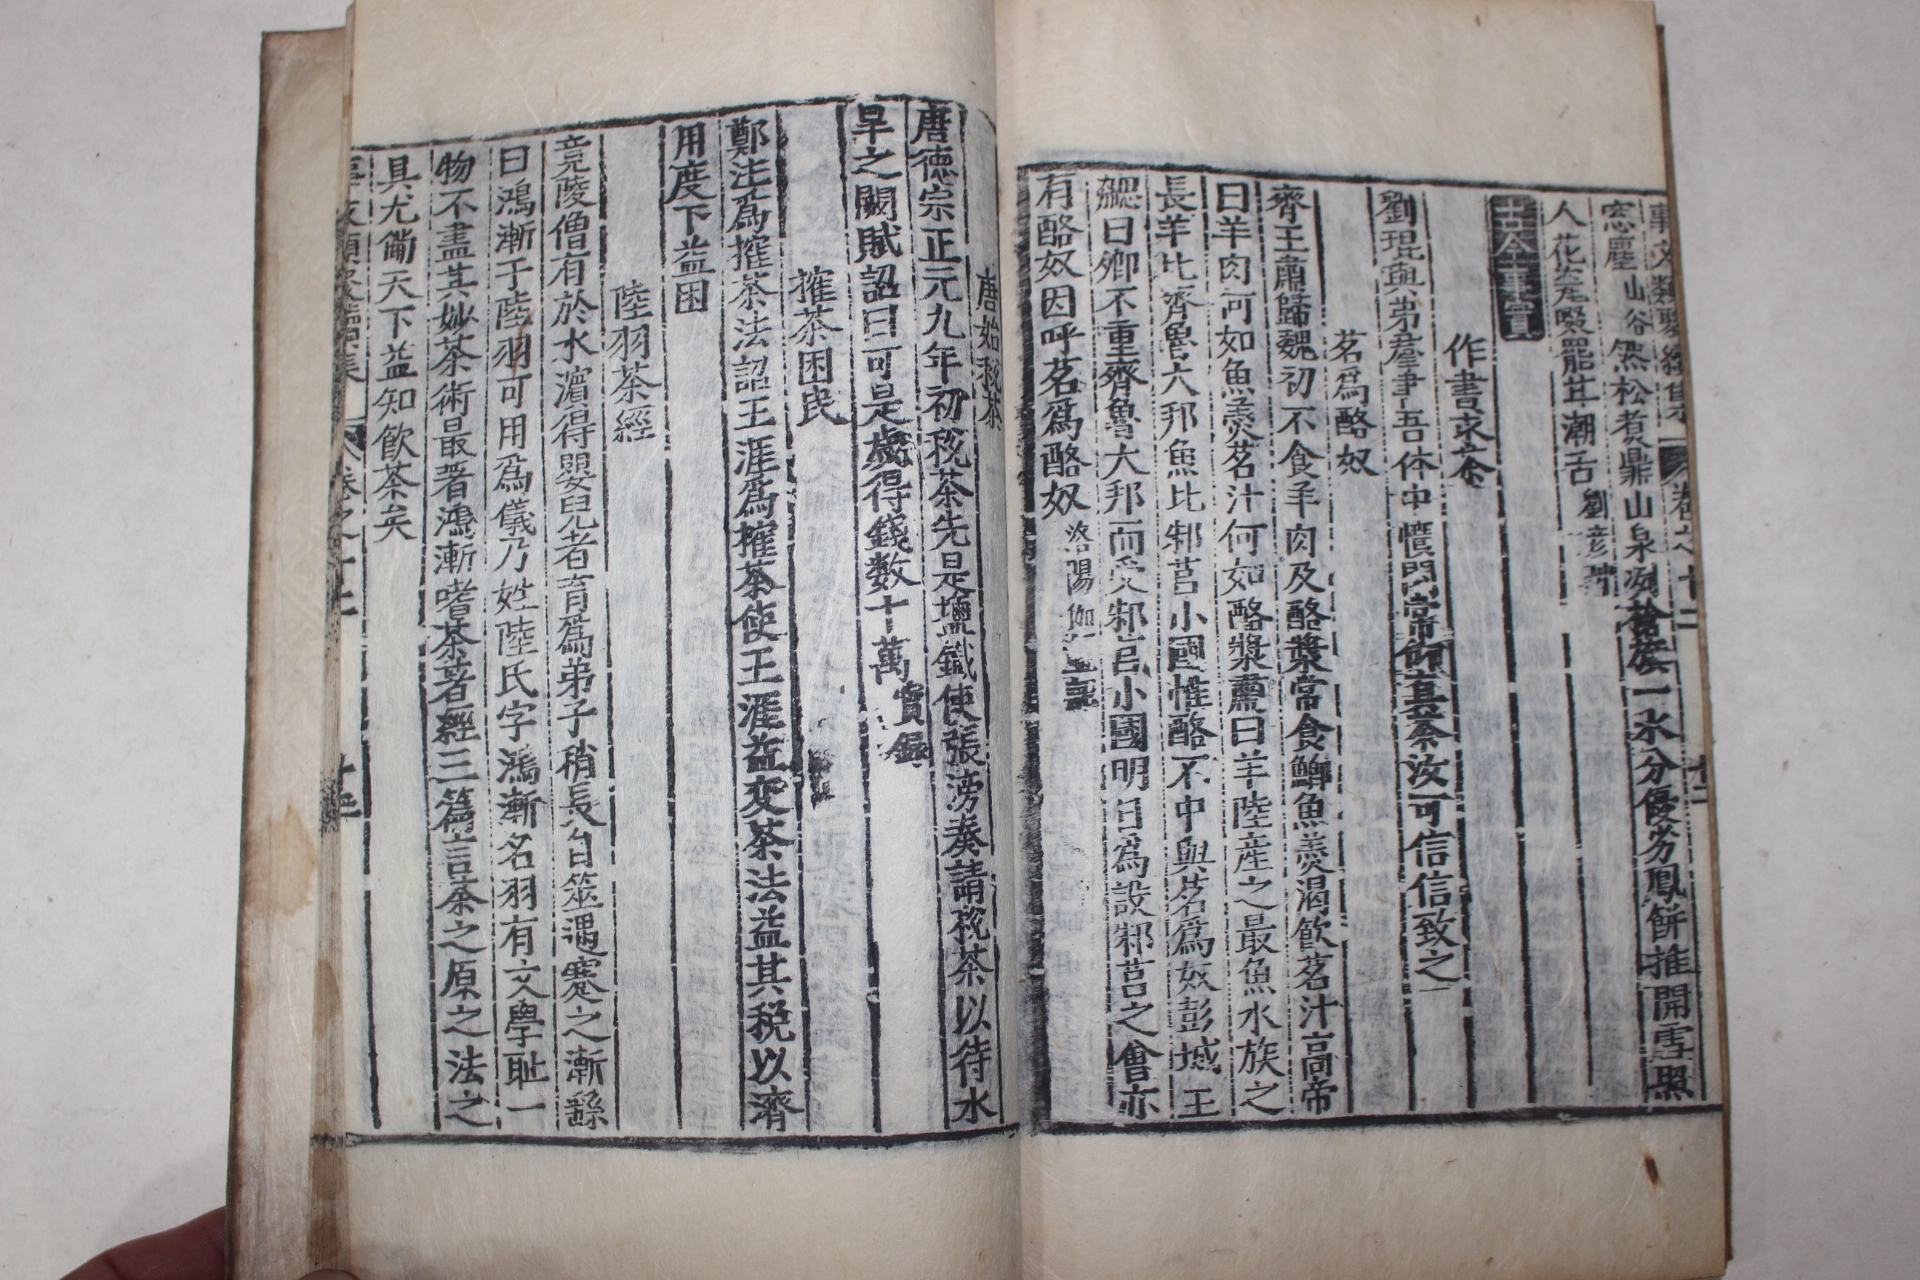 事文類聚續集 卷之十二 十二
窓塵 山谷 然松煮鼎山泉冽 一水分優劣鳳餅推開雪照
人花 啜罷 潮舌 劉彥
古今事實
作書求茶
劉琨與弟羣書吾体中憒悶常仰真茶汝可信信致之
茗爲酪奴
齊王肅歸魏初不食羊肉及酪漿常食鯽魚羹渴飲茗汁高帝
曰羊肉何如魚羹茗汁何如酪漿肅曰羊陸産之最魚水族之
長羊比齊魯大邦魚比邾莒小國惟酪不中與茗爲奴彭城王
勰曰鄉不重齊魯大邦而受邾莒小國明日爲設邾莒之會亦
有酪奴因呼茗爲酪奴 洛陽伽 記
唐始稅茶
唐德宗正元九年初稅茶先是塩鐵使張滂奏請稅茶以待水
旱之闕賦詔曰可是歲得錢数十萬 實録
搉茶困民
鄭注爲搉茶法詔王涯爲搉茶使王涯益变茶法益其税以濟
用度下益困
陸羽茶經
竟陵僧有於水濵得嬰兒者育爲弟子稍長自筮遇蹇之漸繇
曰鴻漸于陸羽可用爲儀乃姓陸氏字鴻漸名羽有文學耻一
物不盡其妙茶術最著鴻漸嗜茶著經三篇言茶之原之法之
具尤備天下益知飲茶矣
卷之十二 十三